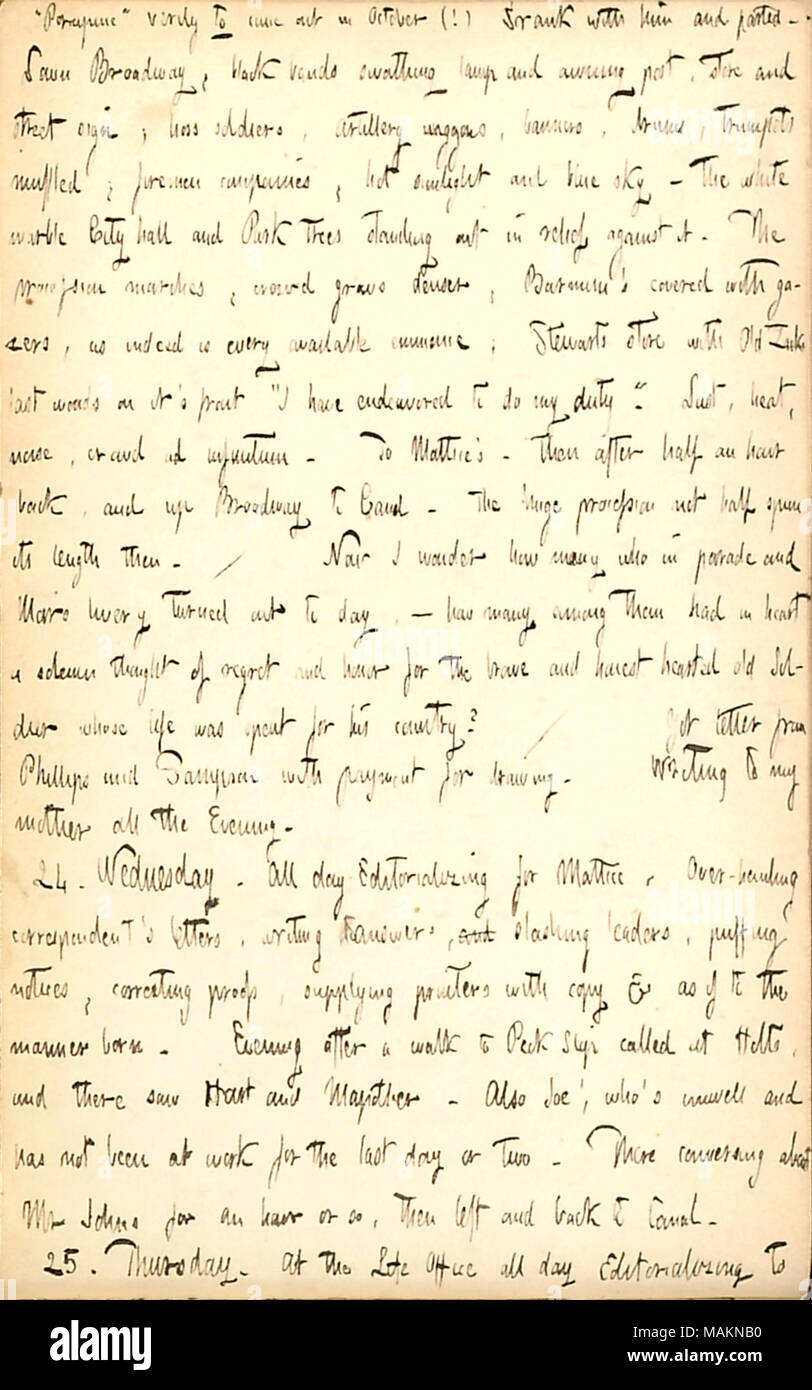 "Porcupine" verily to come out in October (!) Drank with him and parted.
Down Broadway, black bands swathing lamp and awning post, store and
street sign; hoss soldiers, artillery waggons, banners, drums, trumpets
muffled; firemen companies, hot sunlight and blue sky — the white
marble City hall and Park trees standing out in relief against it. The
procession marches, crowd grows denser, Barnum's covered with ga-
zers, as indeed is every available eminence; Stewarts store with Old Zack's
last words on it's front "I have endeavored to do my duty". Dust, heat,
noise, crowd ad infinitum. To Mattice's. then after half an hour
back, and up Broadway to Canal. The huge procession not half spun
its length then. / Now I wonder how many who in parade and
Mars livery turned out to day, — how many among them had in heart
a solemn thought of regret and honor for the brave and honest hearted old Sol-
dier whose life was spent for his country? / Got letter from
Phillips and Sampson with payment for drawing. Writing to my
mother all the Evening.
24. Wednesday. All day Editorializing for Mattice. Over-hauling
correspondent's letters, writing answers, and slashing leaders, puffing
notices, correcting proofs, supplying printers with copy &c as if to the
manner born. Evening after a walk to Peck Slip called at Holts,
and there saw Hart and Mapother. Also Joe, who's unwell and
has not been at work for the last day or two. There conversing about
Mr Johns for an hour or so, then left and back to Canal.
25. Thursday. At the Office all day Editorializing to
alamy
Image ID: MAKNB0
www.alamy.com